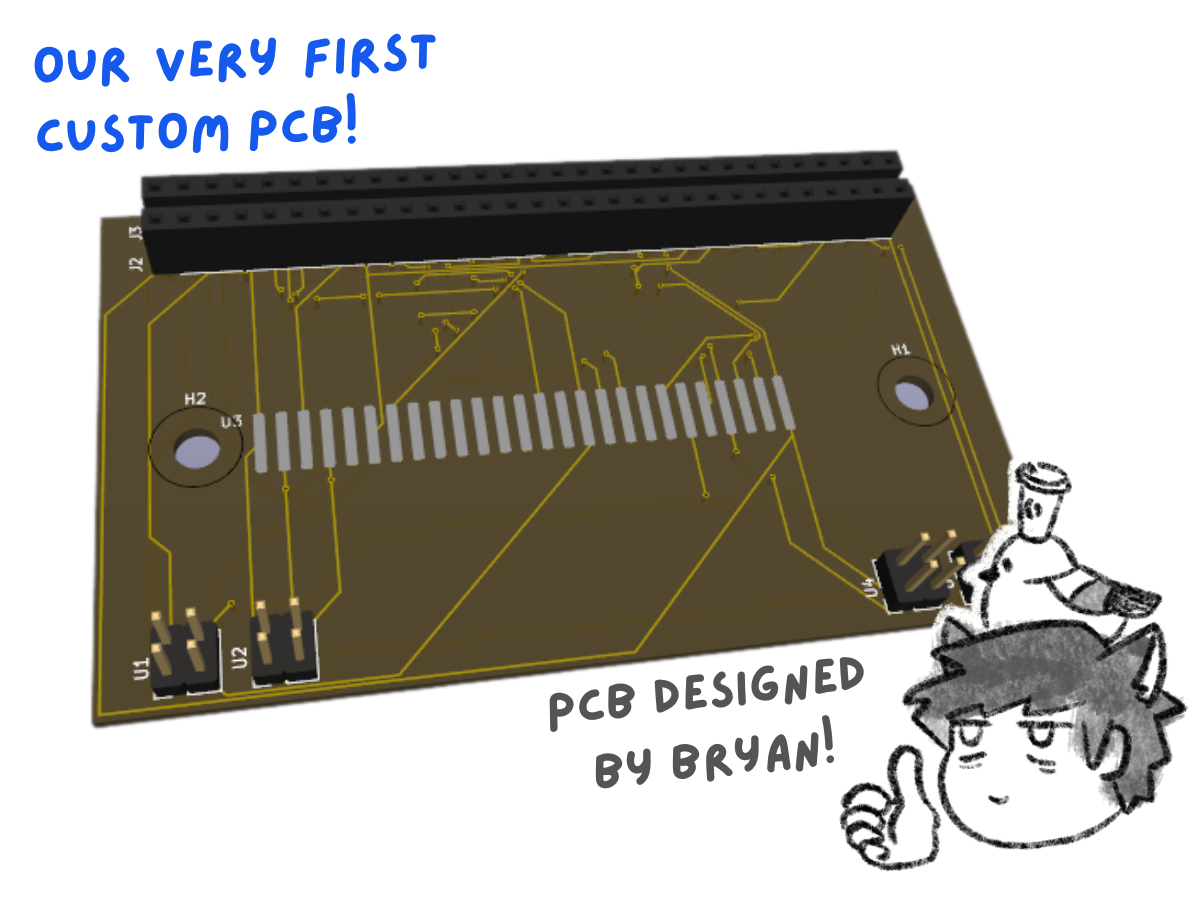 OUR VERY FIRST
CUSTOM PCB!
J3
J2
H1
H2
U3
U4
U1
U2
PCB DESIGNED
BY BRYAN!